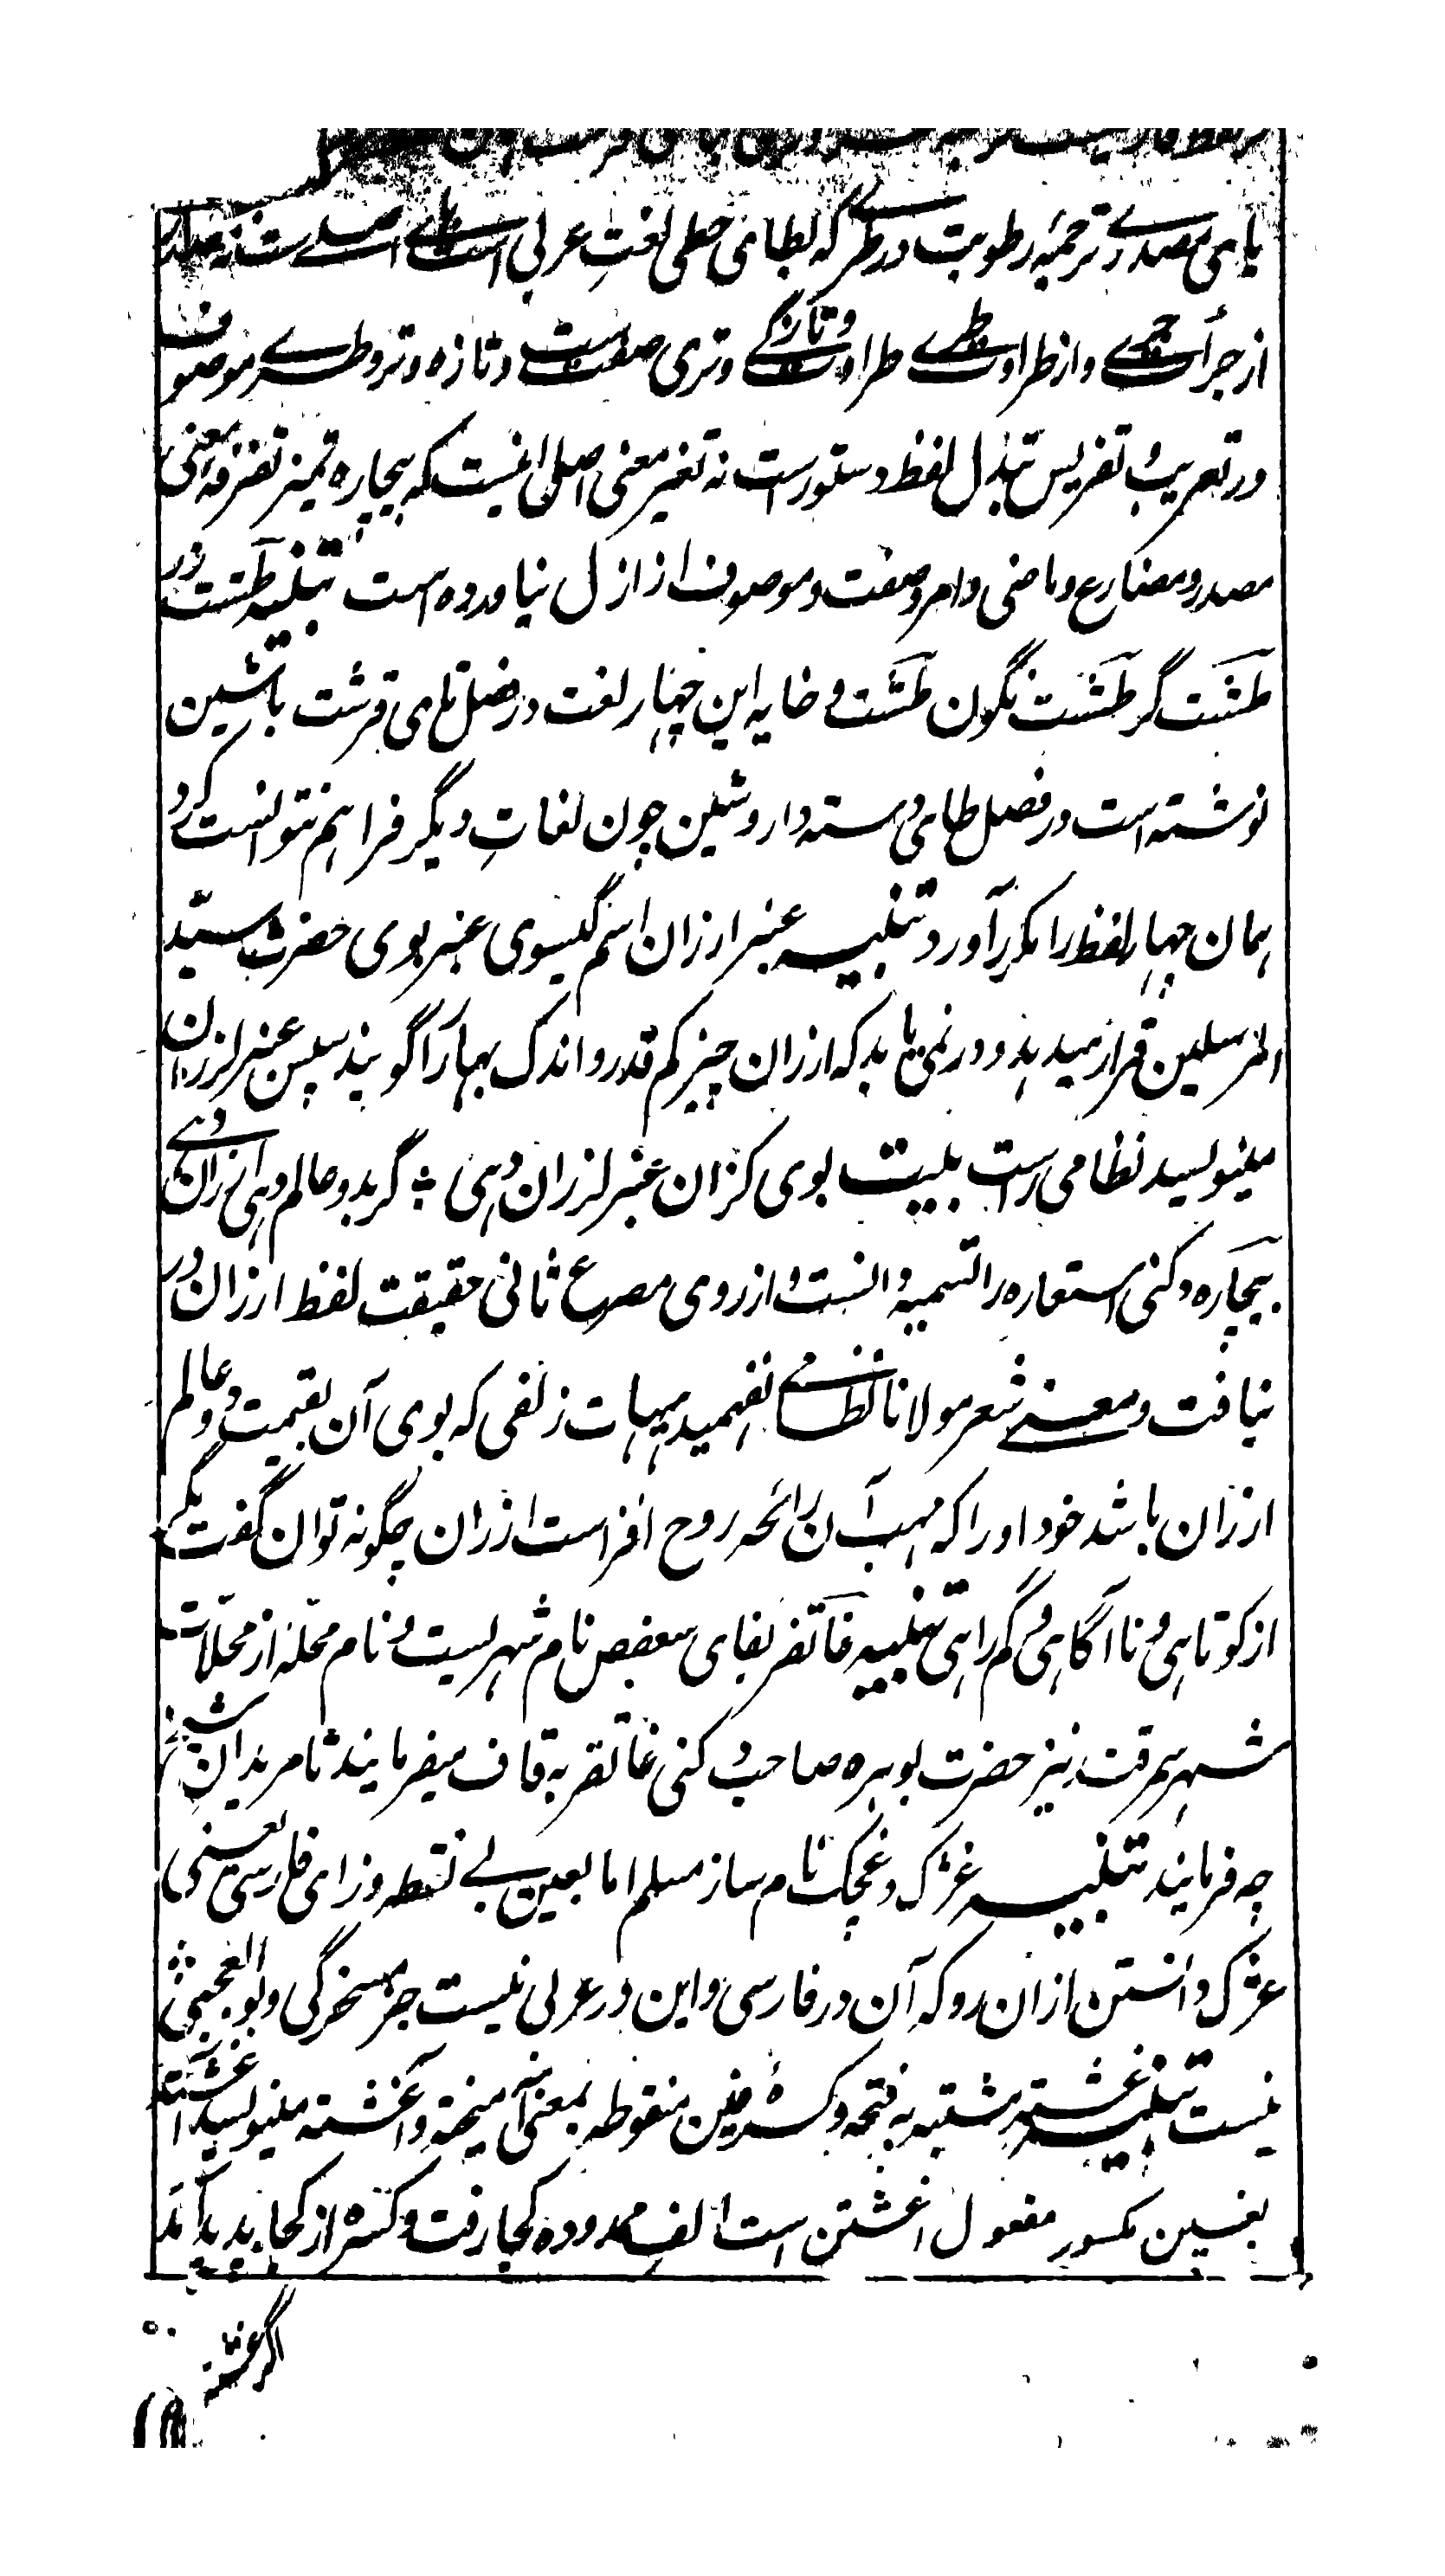 یای مصدری ترجمهٔ رطوبت و طری که بطای حطی لغتِ عربی است
از جرأت جری و از طراوت طری طراوت و تازگی و تری صفت است و تازه و تر و طری موصوف
در تعریب و تفریس تبدل لفظ دستورست نه تغیر معنی اصلی اینست که بیچاره تمیز تفرقهٔ معنی
مصدر و مضارع و ماضی و امر و صفت و موصوف از ازل نیاورده است تنبیه طَشت در
طَشت گر طَشت نگون طَشت و خایه این چهار لغت در فصل تای قرشت با شین
نوشته است در فصل طای دسته دار و شین چون لغاتِ دیگر فراهم نتوانست کرد
همان چهار لفظ را مکرر آورد تنبیه عنبر ارزان اسم گیسوی عنبر بوی حضرت سید
المرسلین قرار میدهد و در نمی یابد که ارزان چیز کم قدر و اندک بها را گویند سپس عنبر لرزان
مینویسد نظامی راست بیت بوی کزان عنبر لرزان دهی ؞ گر بدو عالم دهی ارزان دهی
بیچاره دکنی استعاره را تسمیه دانست و از روی مصرع ثانی حقیقت لفظ ارزان در
نیافت و معنی شعر مولانا نظامی نفهمید هیهات زلفی که بوی آن بقیمت دو عالم
ارزان باشد خود او را که مهب آن رائحه روح افزاست ارزان چگونه توان گفت
از کوتاهی و ناآگاهی و گم راهی تنبیه فاتفر بفای سعفص نام شهریست و نام محله از محلات
شهر سمرقند نیز حضرت بوهره صاحب دکنی غاتقر به قاف میفرمایند تا مریدان شیخ
چه فرمایند تنبیه غژک و غچک نام ساز مسلم اما بعین بے نقطه و زای فارسی یعنی
عژک دانستن ازان رو که آن در فارسی و این در عربی نیست جز مسخرگی و بوالعجبی
نیست تنبیه غشته مشتبه به فتحه و کسرهٔ غین منقوطه بمعنی آمیخته و آغشته مینویسد آغشته
بغین مکسور مفعول اغشتن است الف ممدوده کجا رفت و کسره از کجا پدید آمد
اگر غشته